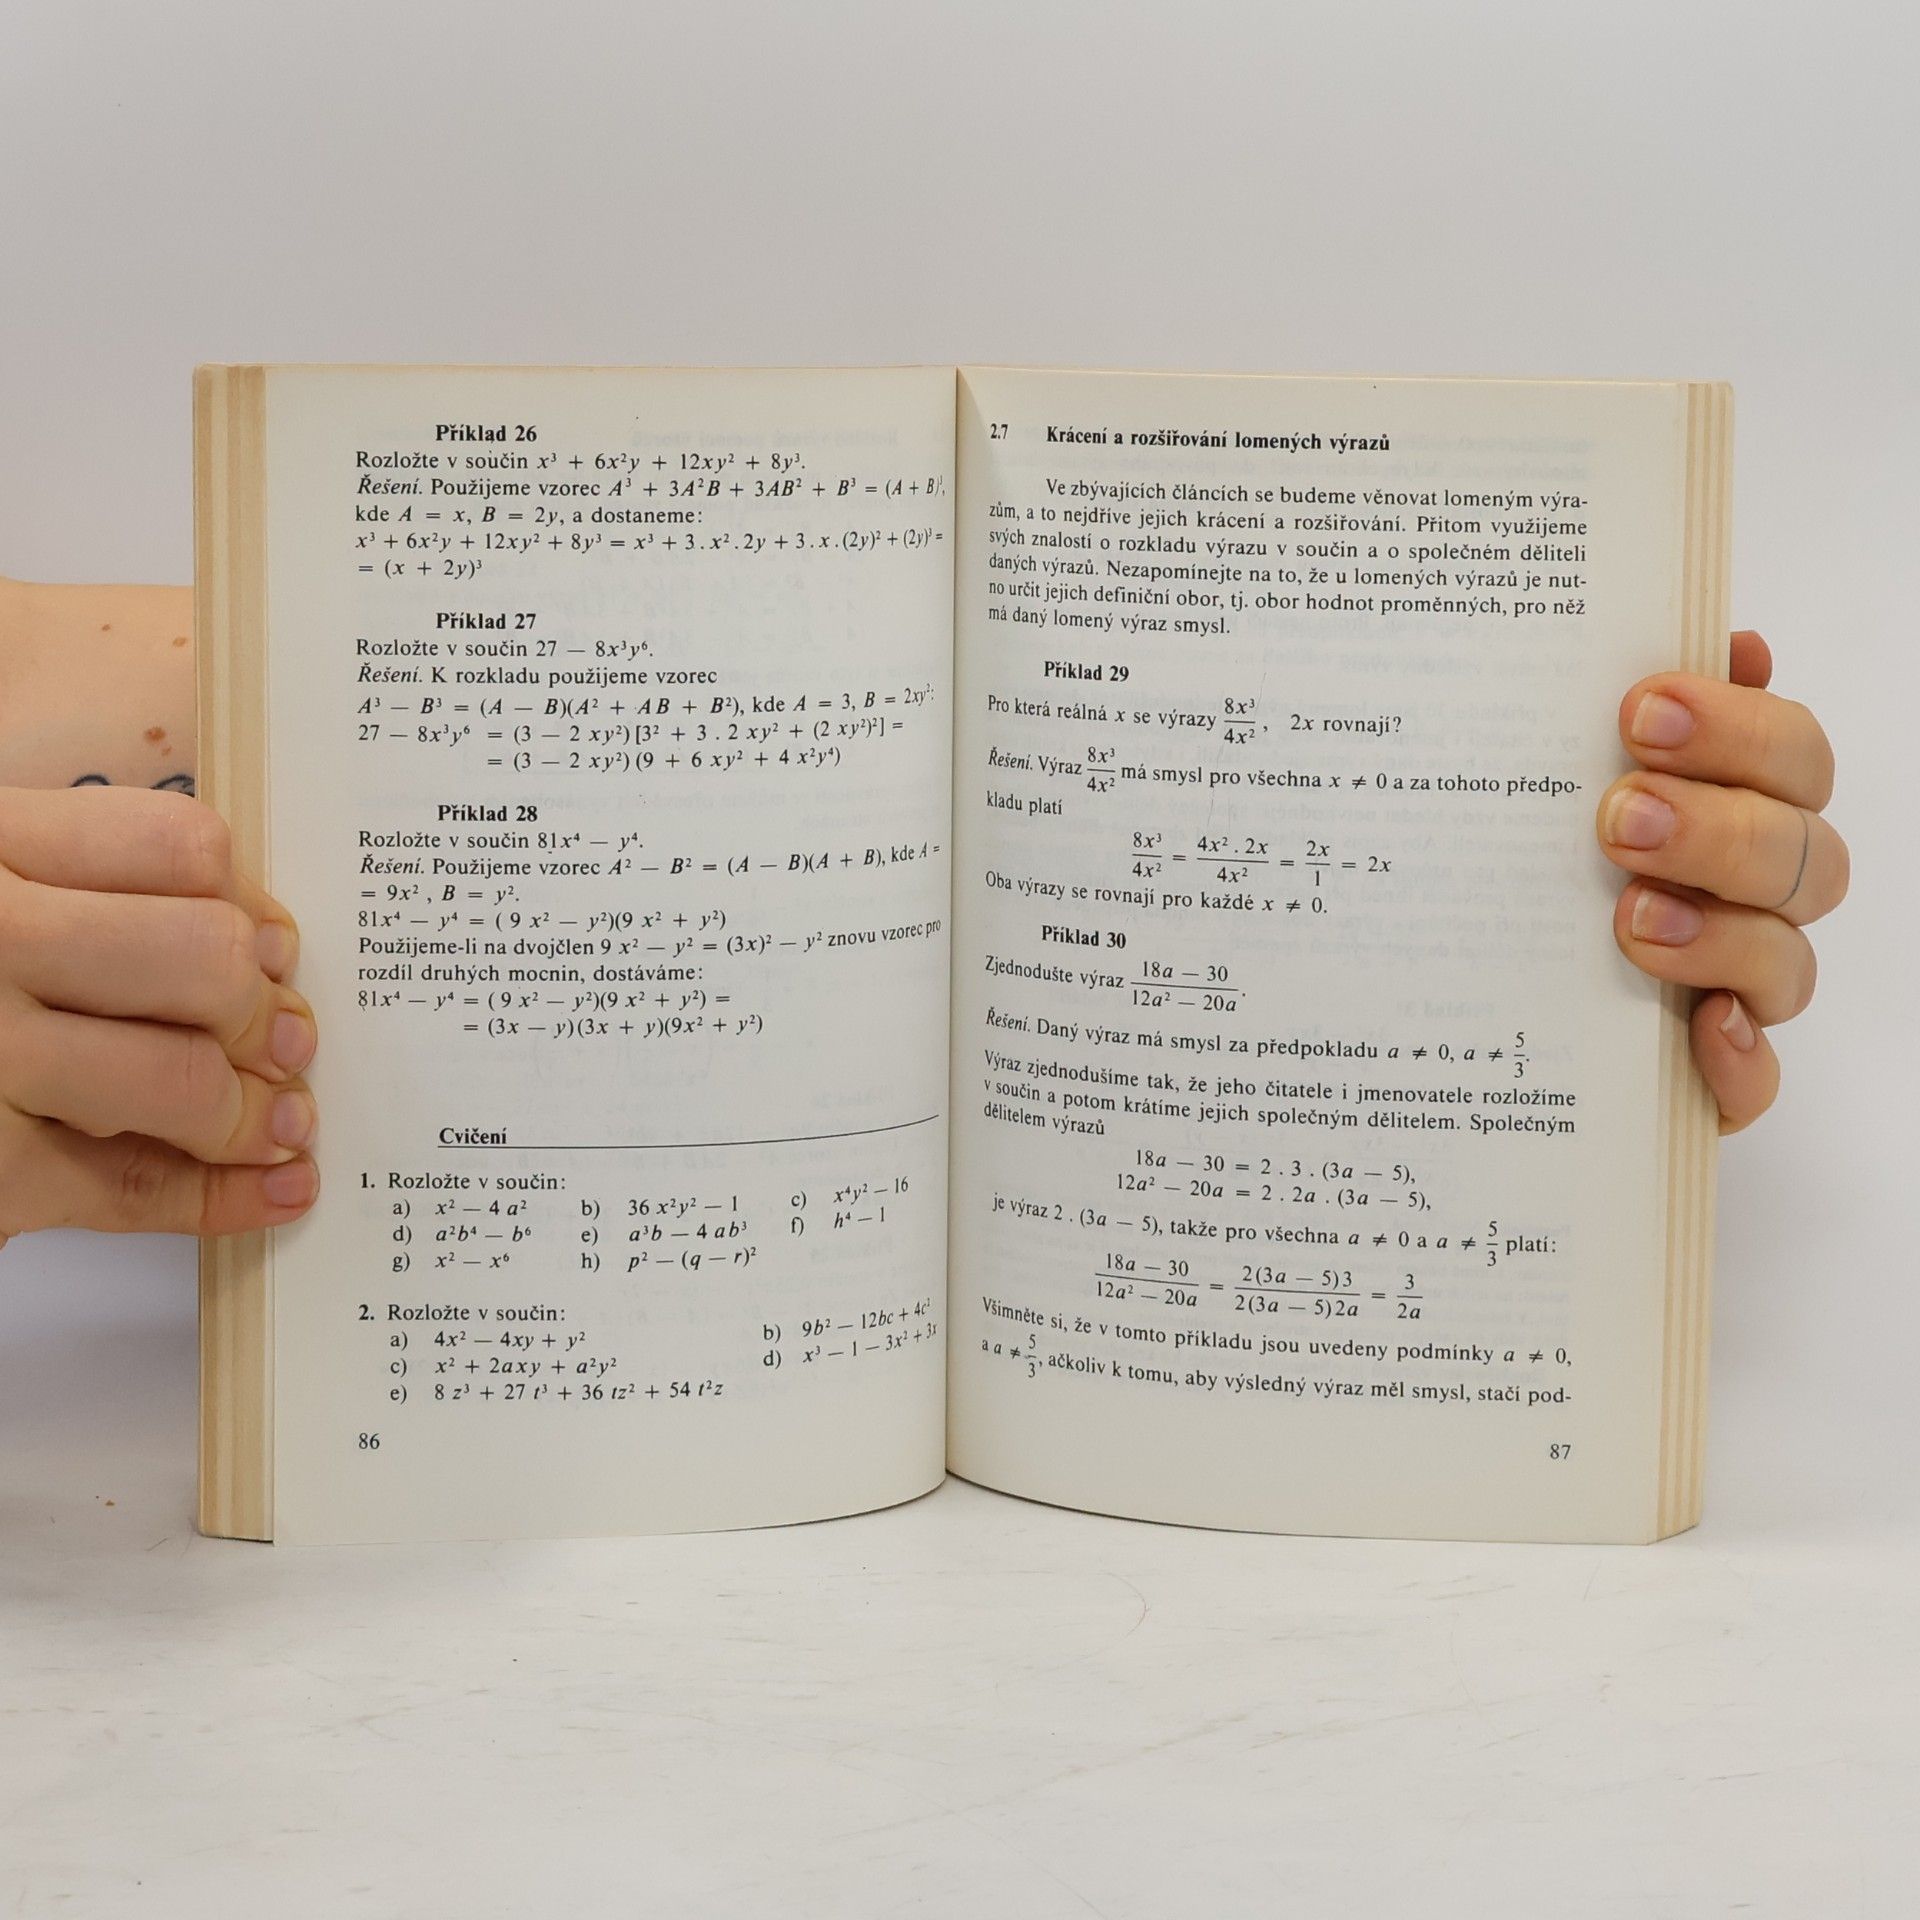 Příklad 26
Rozložte v součin x³ + 6x²y + 12xy² + 8y³.
Řešení. Použijeme vzorec A³ + 3A²B + 3AB² + B³ = (A + B)³,
kde A = x, B = 2y, a dostaneme:
x³ + 6x²y + 12xy² + 8y³ = x³ + 3.x².2y + 3.x.(2y)² + (2y)³ =
= (x + 2y)³
Příklad 27
Rozložte v součin 27 — 8x³y⁶.
Řešení. K rozkladu použijeme vzorec
A³ — B³ = (A — B)(A² + AB + B²), kde A = 3, B = 2xy²:
27 — 8x³y⁶ = (3 — 2 xy²) [3² + 3 . 2 xy² + (2 xy²)²] =
= (3 — 2 xy²) (9 + 6 xy² + 4 x²y⁴)
Příklad 28
Rozložte v součin 81x⁴ — y⁴.
Řešení. Použijeme vzorec A² — B² = (A — B)(A + B), kde A =
= 9x² , B = y².
81x⁴ — y⁴ = ( 9 x² — y²)(9 x² + y²)
Použijeme-li na dvojčlen 9 x² — y² = (3x)² — y² znovu vzorec pro
rozdíl druhých mocnin, dostáváme:
81x⁴ — y⁴ = ( 9 x² — y²)(9 x² + y²) =
= (3x — y)(3x + y)(9x² + y²)
Cvičení
1. Rozložte v součin:
a) x² — 4 a² b) 36 x²y² — 1 c) x⁴y² — 16
d) a²b⁴ — b⁶ e) a³b — 4 ab³ f) h⁴ — 1
g) x² — x⁶ h) p² — (q — r)²
2. Rozložte v součin:
a) 4x² — 4xy + y² b) 9b² — 12bc + 4c²
c) x² + 2axy + a²y² d) x³ — 1 — 3x² + 3x
e) 8 z³ + 27 t³ + 36 tz² + 54 t²z
86
2.7 Krácení a rozšiřování lomených výrazů
Ve zbývajících článcích se budeme věnovat lomeným výra-
zům, a to nejdříve jejich krácení a rozšiřování. Přitom využijeme
svých znalostí o rozkladu výrazu v součin a o společném děliteli
daných výrazů. Nezapomínejte na to, že u lomených výrazů je nut-
no určit jejich definiční obor, tj. obor hodnot proměnných, pro něž
má daný lomený výraz smysl.
Příklad 29
Pro která reálná x se výrazy 8x³/4x² , 2x rovnají?
Řešení. Výraz 8x³/4x² má smysl pro všechna x ≠ 0 a za tohoto předpo-
kladu platí
8x³/4x² = 4x² . 2x/4x² = 2x/1 = 2x
Oba výrazy se rovnají pro každé x ≠ 0.
Příklad 30
Zjednodušte výraz (18a — 30)/(12a² — 20a).
Řešení. Daný výraz má smysl za předpokladu a ≠ 0, a ≠ 5/3.
Výraz zjednodušíme tak, že jeho čitatele i jmenovatele rozložíme
v součin a potom krátíme jejich společným dělitelem. Společným
dělitelem výrazů
18a — 30 = 2 . 3 . (3a — 5),
12a² — 20a = 2 . 2a . (3a — 5),
je výraz 2 . (3a — 5), takže pro všechna a ≠ 0 a a ≠ 5/3 platí:
(18a — 30)/(12a² — 20a) = 2(3a — 5)3/2(3a — 5)2a = 3/2a
Všimněte si, že v tomto příkladu jsou uvedeny podmínky a ≠ 0,
a a ≠ 5/3, ačkoliv k tomu, aby výsledný výraz měl smysl, stačí pod-
87